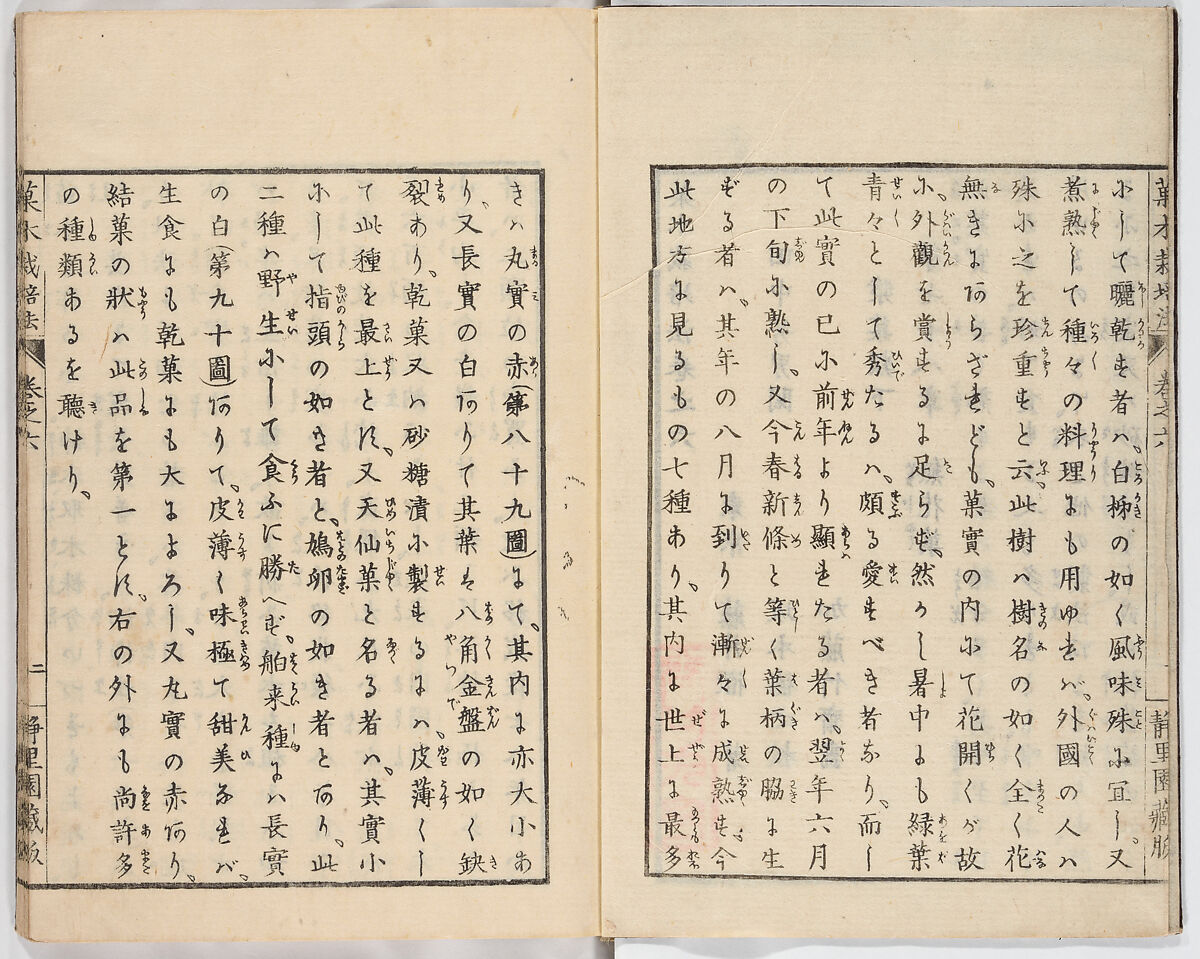 菓木栽培法　巻之六　静里園蔵版
にして曬乾す者ハ、白柹の如く風味殊に宜し、又
煮熟して種々の料理にも用ゆれバ、外國の人ハ
殊に之を珍重すと云、此樹ハ樹名の如く全く花
無きにあらざれども、菓實の内にて花開くが故
に、外觀を賞するに足らず、然かし暑中にも緑葉
青々として秀たるハ、頗る愛すべき者なり、而し
て此實の已に前年より顯れたる者ハ、翌年六月
の下旬に熟し、又今春新條と等く葉柄の脇に生
ずる者ハ、其年の八月に到りて漸々に成熟す、今
此地方に見るもの七種あり、其内に世上に最多
きハ丸實の赤(第八十九圖)にて、其内に亦大小あ
り、又長實の白ありて其葉は八角金盤の如く缺
裂あり、乾菓又ハ砂糖漬に製するにハ、皮薄くし
て此種を最上とす、又天仙菓と名る者ハ、其實小
にして指頭の如き者と、鳩卵の如き者とあり、此
二種ハ野生にして食ふに勝へず、舶来種にハ長實
の白(第九十圖)ありて、皮薄く味極て甜美なれバ、
生食にも乾菓にも大によろし、又丸實の赤あり、
結菓の状ハ此品を第一とす、右の外にも尚許多
の種類あるを聽けり、
菓木栽培法　巻之六　二　静里園蔵版